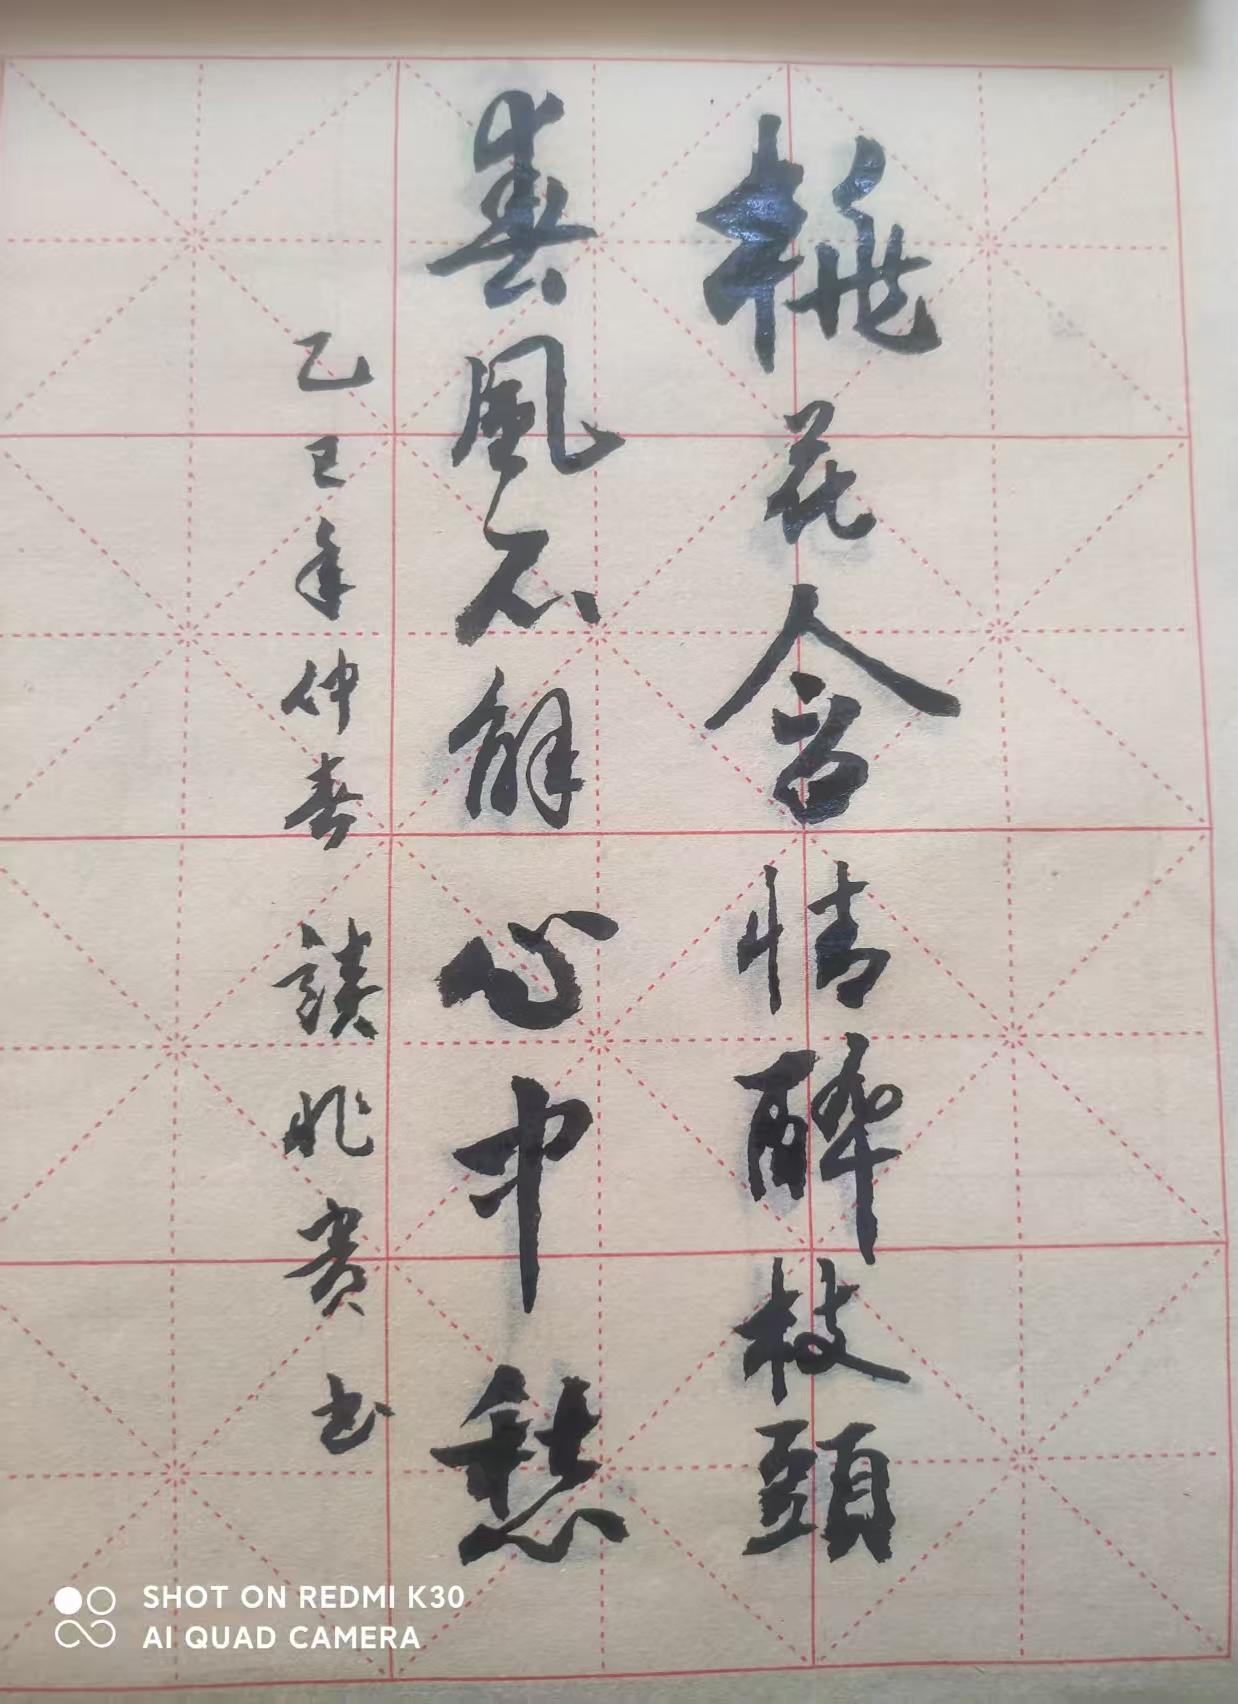 桃花含情醉枝頭
春風不解心中愁
乙巳年仲春 讀兆貴书
SHOT ON REDMI K30
AI QUAD CAMERA